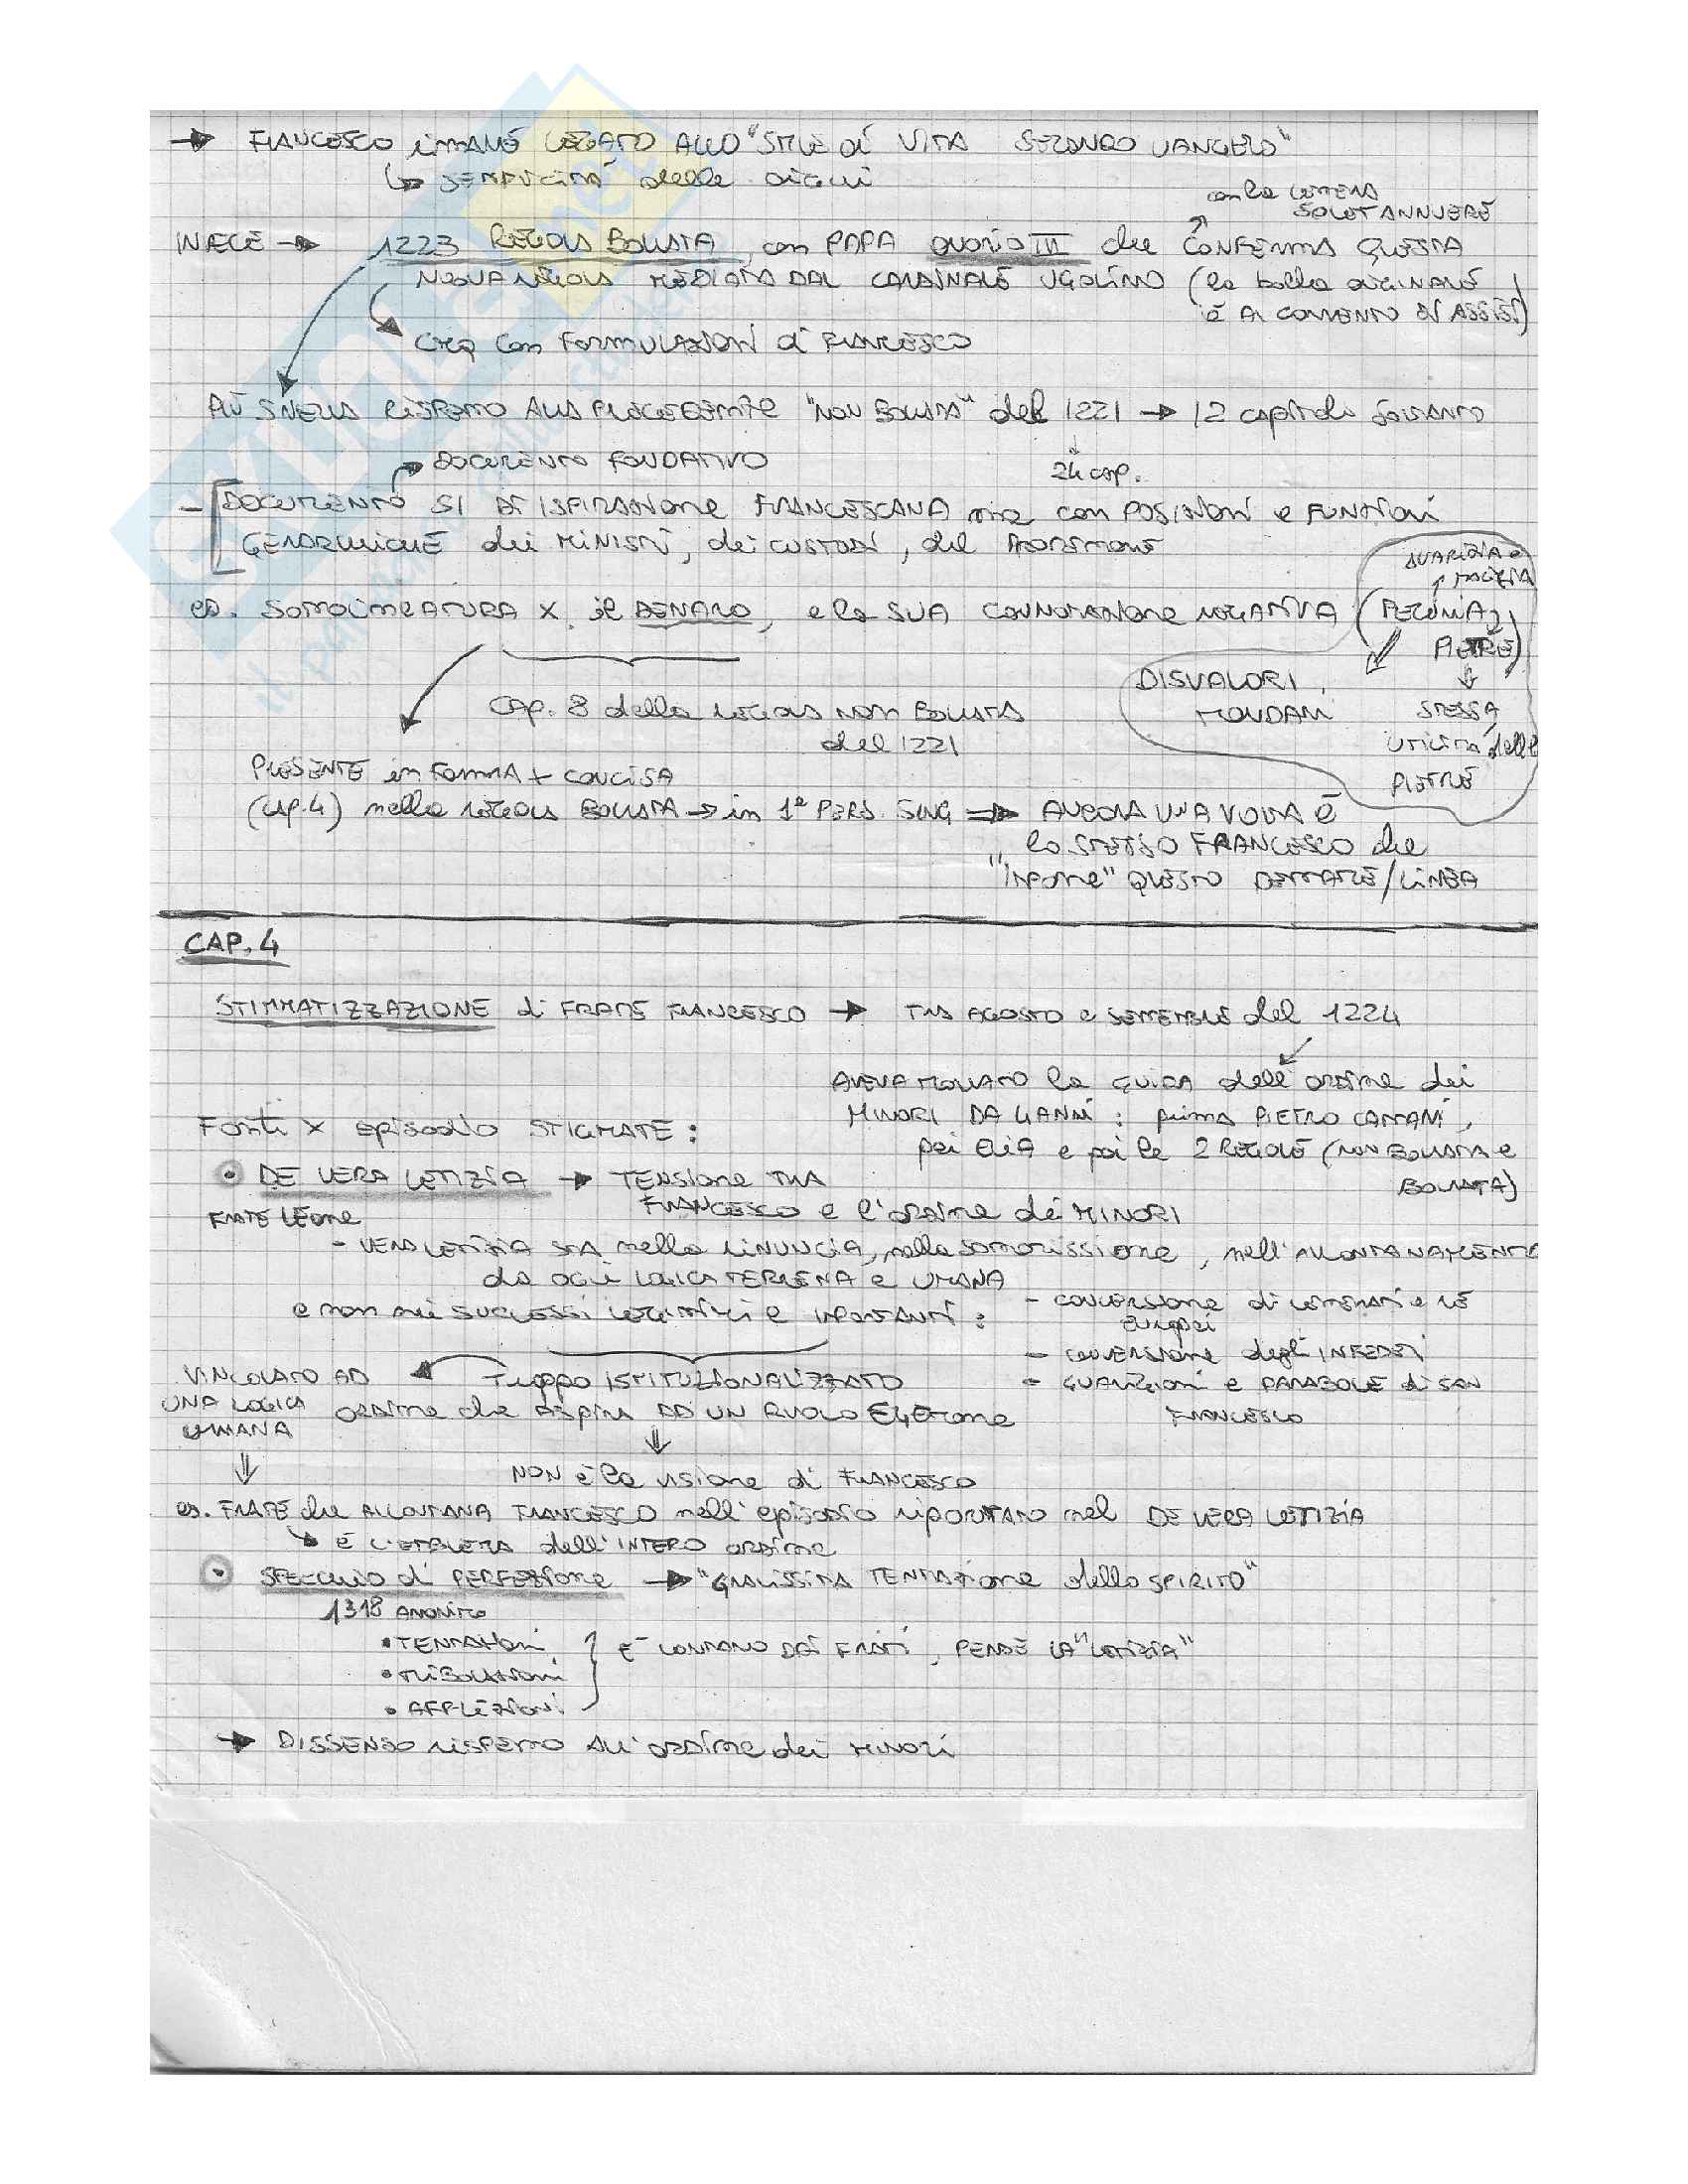 → FRANCESCO RIMANE LEGATO ALLO "STILE di VITA SECONDO VANGELO"
↳ SEMPLICITÀ delle
con la LETTERA
SOLET ANNUERE
INVECE → 1223 REGOLA BOLLATA, con PAPA ONORIO III che CONFERMA QUESTA
NUOVA REGOLA MEDIATA DAL CARDINALE UGOLINO (la bolla ORIGINALE
è AL CONVENTO DI ASSISI)
con FORMULAZIONI di FRANCESCO
PIÙ SNELLA RISPETTO ALLA PRECEDENTE "NON BOLLATA" del 1221 → 12 capitoli SOLTANTO
24 cap.
DOCUMENTO FONDATIVO
- DOCUMENTO SI DI ISPIRAZIONE FRANCESCANA ma con POSIZIONI e FUNZIONI
GERARCHICHE dei MINISTRI, dei CUSTODI, del PROTETTORE
AVARIZIA e
es. SOTTOLINEATURA x il DENARO, e la SUA CONNOTAZIONE NEGATIVA (PECUNIA,
PIETRE)
DISVALORI
MONDANI
STESSA
UTILITÀ delle
PIETRE
CAP. 8 della REGOLA NON BOLLATA
del 1221
PRESENTE in FORMA + CONCISA
(CAP. 4) nella REGOLA BOLLATA → in 1ª PERS. SING ⇒ ANCORA UNA VOLTA È
lo STESSO FRANCESCO che
"IMPONE" QUESTO /LINEA
CAP. 4
STIMMATIZZAZIONE di FRATE FRANCESCO → TRA AGOSTO e SETTEMBRE del 1224
AVEVA MOLLATO la GUIDA dell'ORDINE dei
MINORI DA 4 ANNI: prima PIETRO CATTANI,
poi ELIA e poi le 2 REGOLE (NON BOLLATA e
BOLLATA)
Fonti x episodio STIGMATE:
• DE VERA LETIZIA → TENSIONE TRA
FRANCESCO e l'ORDINE dei MINORI
FRATE LEONE
- VERA LETIZIA STA nella RINUNCIA, nella SOTTOMISSIONE, nell'ALLONTANAMENTO
da OGNI LOGICA TERRENA e UMANA
e non nei SUCCESSI LEGITTIMI e IMPORTANTI:
- CONVERSIONE di e RE
europei
- CONVERSIONE degli INFEDELI
- GUARIGIONI e PARABOLE di SAN
FRANCESCO
VINCOLATO AD
UNA LOGICA
UMANA
TROPPO ISTITUZIONALIZZATO
ORDINE che ASPIRA AD UN RUOLO EGEMONE
NON è la VISIONE di FRANCESCO
es. FRATE che ALLONTANA FRANCESCO nell'episodio RIPORTATO nel DE VERA LETIZIA
↳ È L'EMBLEMA dell'INTERO ORDINE
• SPECCHIO di PERFEZIONE → "GRAVISSIMA TENTAZIONE dello SPIRITO"
1318 ANONIMO
• TENTAZIONI
• TRIBOLAZIONI
• AFFLIZIONI
È LONTANO DAI FRATI, PERDE LA "LETIZIA"
→ DISSENSO RISPETTO ALL'ORDINE dei MINORI